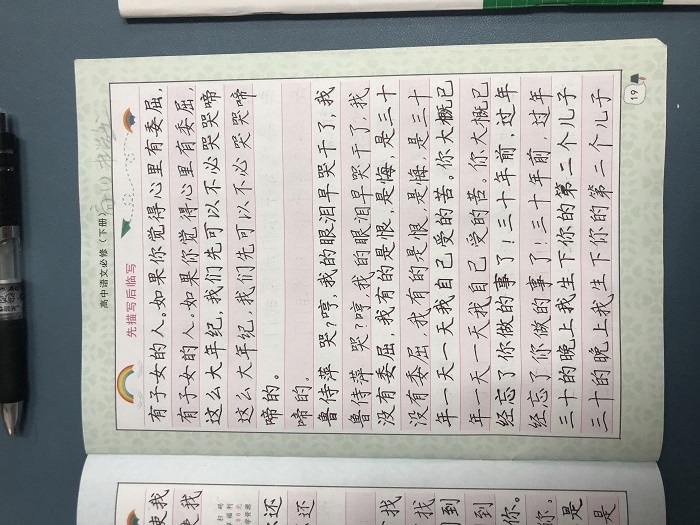 高中语文必修（下册）
先描写后临写
有子女的人。如果你觉得心里有委屈,
有子女的人 如果你觉得心里有委屈,
这么大年纪,我们先可以不必哭哭啼
这么大年纪,我们先可以不必哭哭啼
啼的。
啼的.
鲁侍萍 哭?哼,我的眼泪早哭干了,我
鲁侍萍 哭?哼,我的眼泪早哭干了,我
没有委屈,我有的是恨,是悔,是三十
没有委屈 我有的是恨,是悔,是三十
年一天一天我自己受的苦。你大概已
年一天一天我自己受的苦。你大概已
经忘了你做的事了!三十年前,过年
经忘了你做的事了!三十年前 过年
三十的晚上我生下你的第二个儿子
三十的晚上我生下你的第二个儿子
19
使我
还
还
找
到
到
你。
你.
是
是